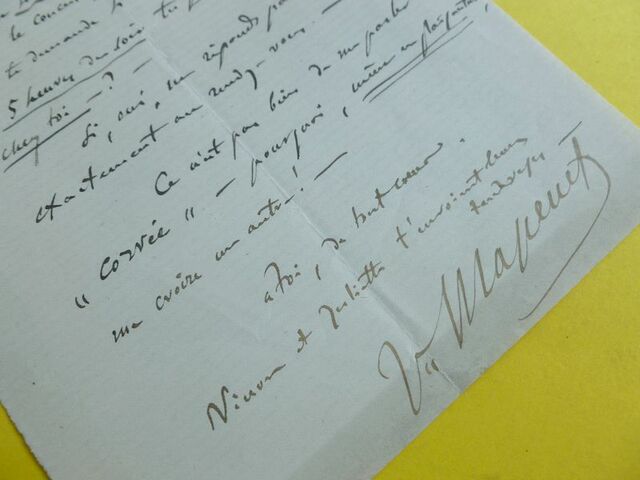 le concer
te demande si
5 heures du soir tu
chez toi - ? -
Si, oui, ne réponds pas
exactement au rendez-vous. -
Ce n'est pas bien de me parler
"corvée" - pourquoi, même en plaisantant,
me croire un autre ! -
à toi, de tout cœur.
Ninon et Juliette t'envoient leurs
tendresses -